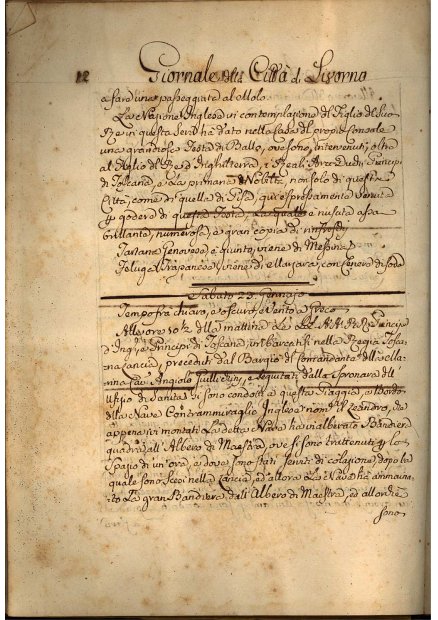 12 Giornale della Città di Livorno
a fare una passeggiata al Molo.
La Nazione Inglese in contemplazione del Figlio del Suo
Re in questa Sera ha dato nella Casa del propio Console
una grandiosa Festa di Ballo, ove sono intervenuti, oltre
al Figlio del Re d'Inghilterra, i Reali Arciduchi Principi
di Toscana, e la primaria Nobiltà, non solo di questa
Città, come di quella di Pisa, qui espressamente venuta
per godere di questa Festa, la quale è riuscita assai
brillante, numerosa, e gran copia di rinfreschi,
Tartana Genovese è giunto, viene di Messina
Feluga Trapanese, viene di Mazara, con Cenere di soda
Sabato 23. Gennajo
Tempo fra chiaro, e oscuro, e Vento a Greco
Alle ore 10½ della mattina Le LL. AA. RR. Principe
d'Ingh. e Principi di Toscana, imbarcatisi nella Regia Toscana
Lancia, preceduti dal Bargio del Comandante della
Cav. Angiolo e seguitati dalla Spronara dell'
Ufizio di Sanità si sono condotti a questa Spiaggia, a Bordo
della Nave Contrammiraglio Inglese nom. il Leandro, che
appena ivi montati La detta Nave ha inalberato Bandiera
quadra all'Albero di Maestra, ove si sono trattenuti per lo
Spazio di un'ora, e dove sono stati serviti di colazione, dopo la
quale sono scesi nella Lancia, ed allora La Nave ha ammainato
La gran Bandiera, dall'Albero di Maestra, ed allorchè
sono